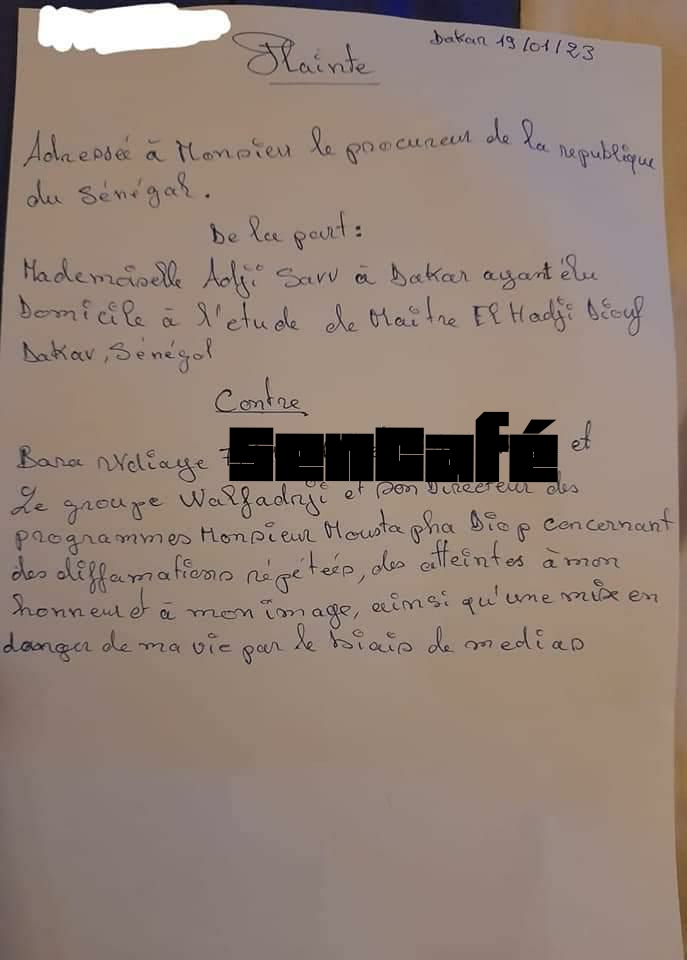 Dakar 19/01/23
Plainte
Adressée à Monsieur le procureur de la republique
du Sénégal.
De la part:
Mademoiselle Adji Sarr à Dakar ayant élu
Domicile à l'etude de Maître El Hadji Diouf
Dakar, Sénégal
Contre
Bara Ndiaye SenCafé et
Le groupe Walfadrji et son Directeur des
programmes Monsieur Moustapha Diop concernant
des diffamations répétées, des atteintes à mon
honneur et à mon image, ainsi qu'une mise en
danger de ma vie par le biais de medias